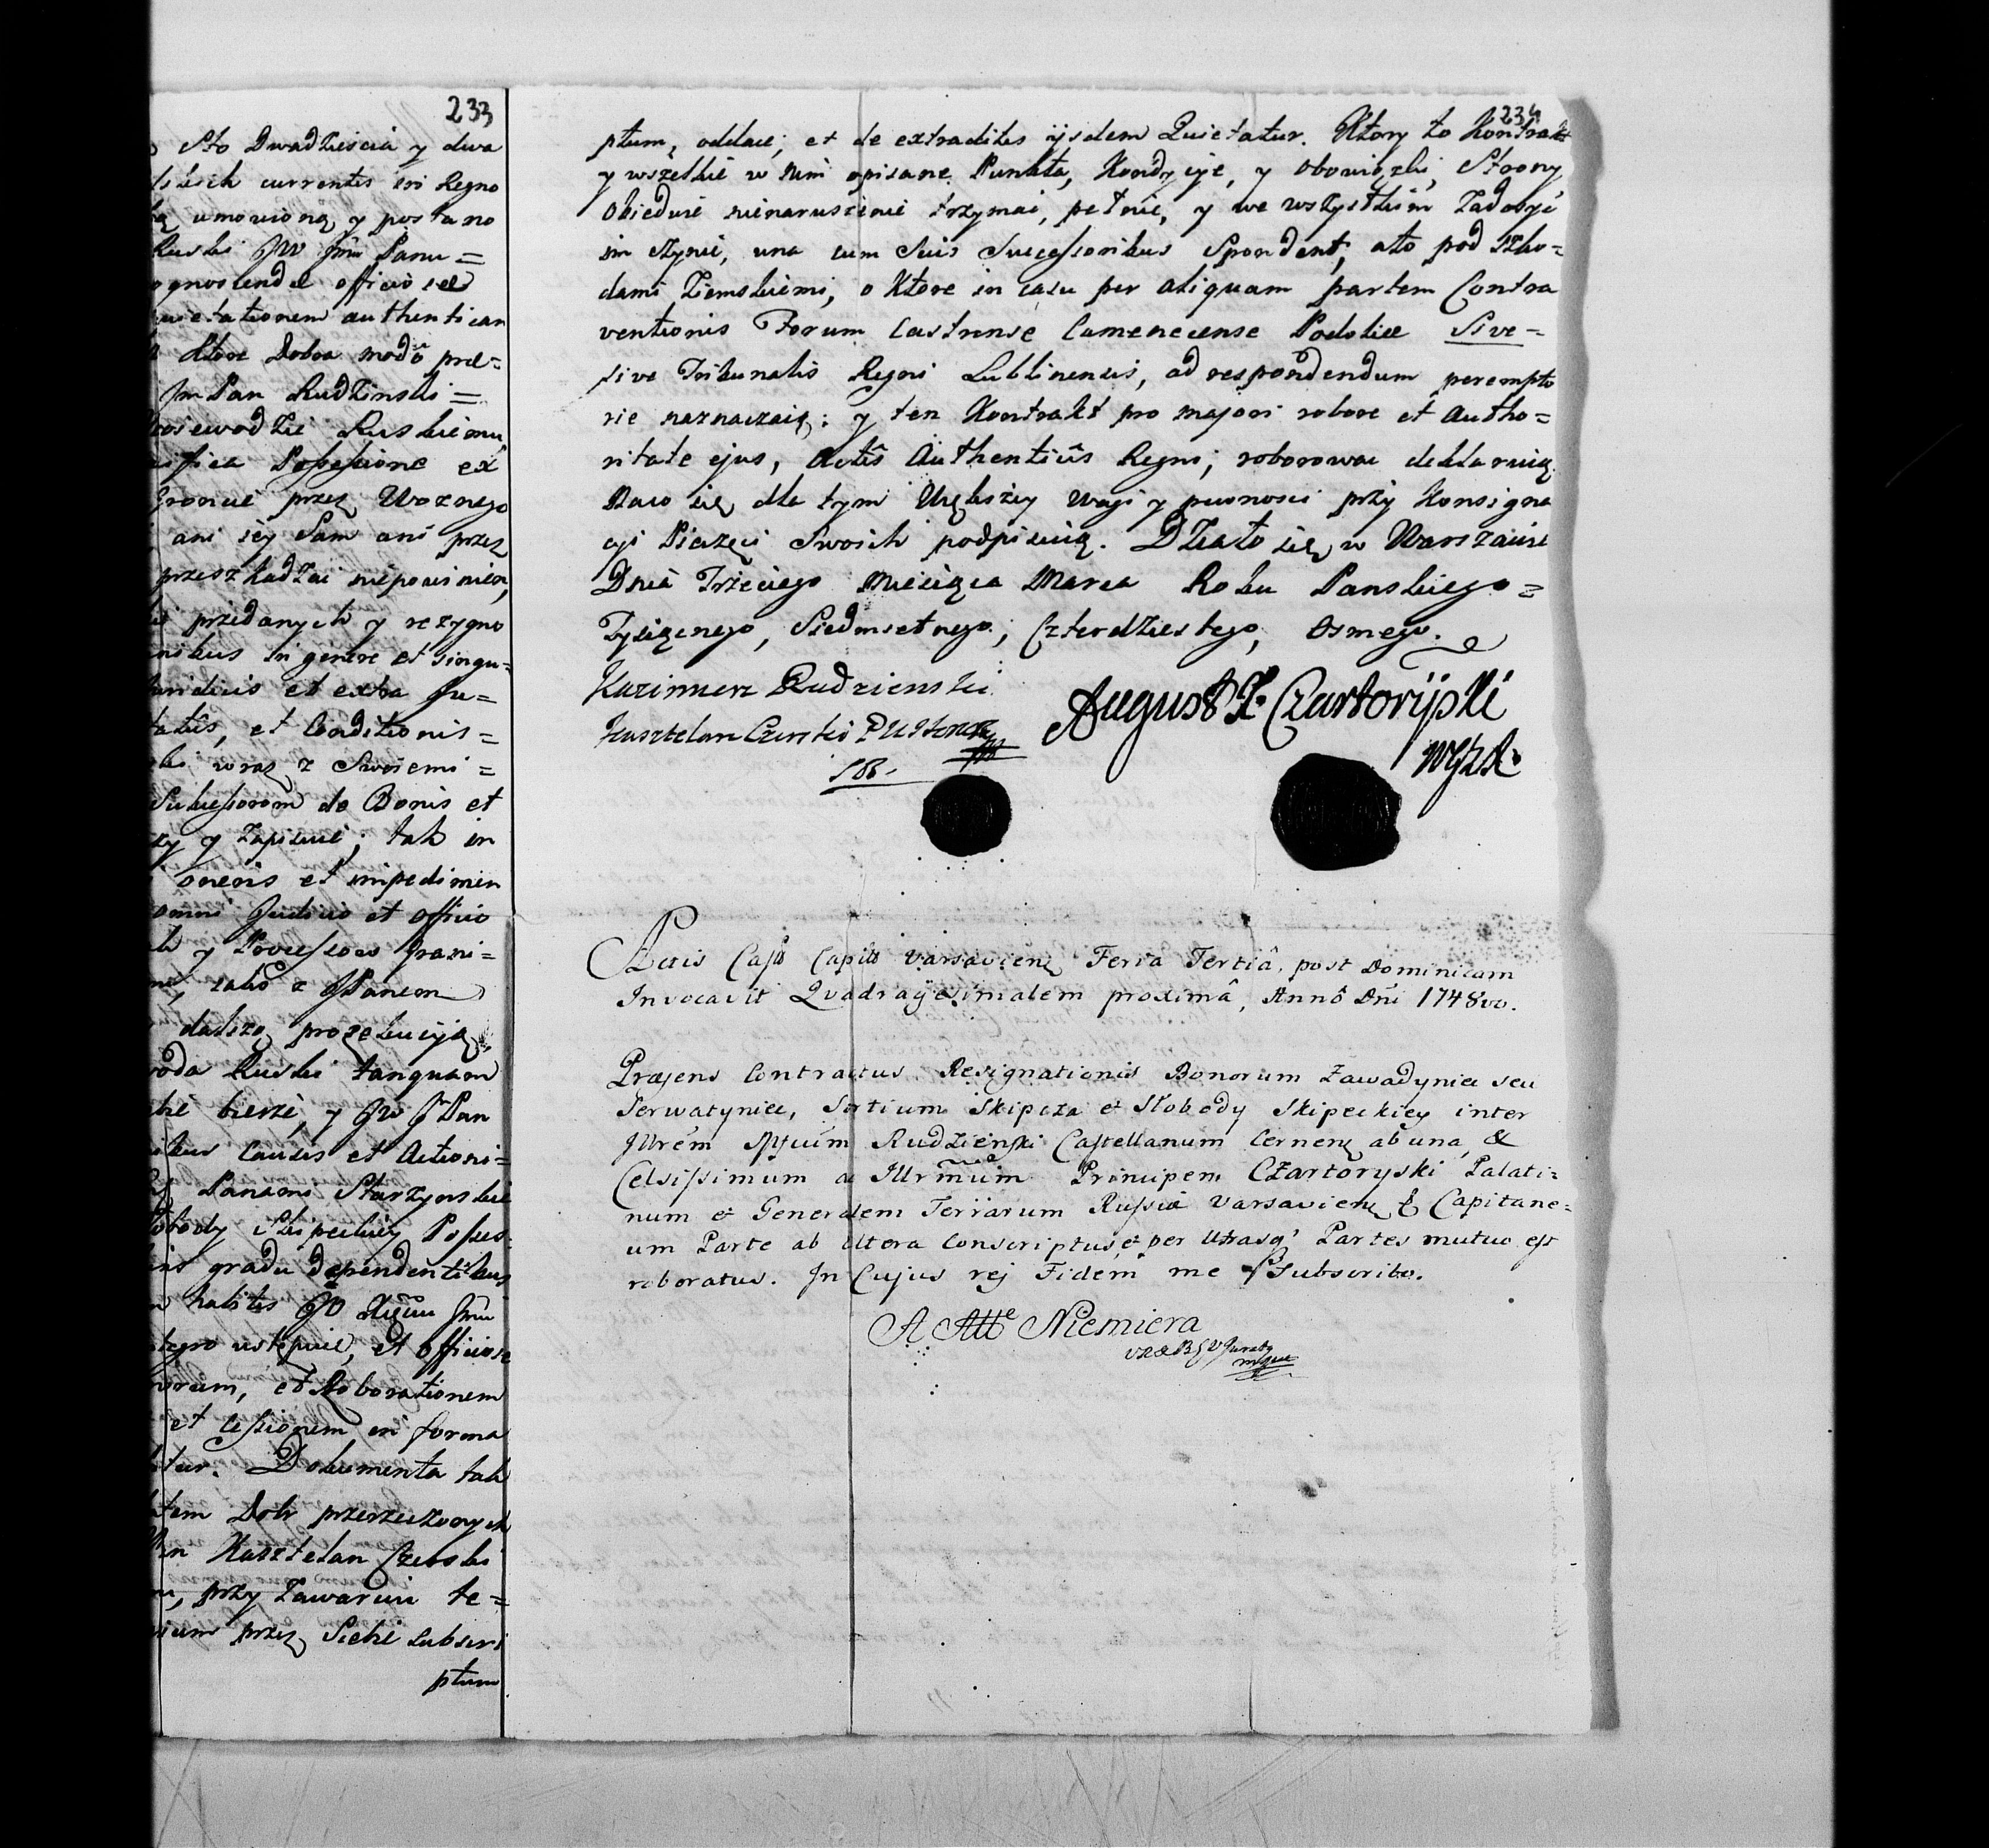 233
Sto Dwadziescia y dwa
currentis in Regno
umowioną y postano
Ruski JW Jm Panu =
officio sed
authentican
Ktore Dobra modo prae=
Jm Pan Rudzinski =
Woiewodzie Ruskiemu,
Possessione ex
przez Woznego
ani iey Sam ani przez
przeszkadzać niepowinien,
przedanych y rezygno
in genere et singu=
et extra Ju=
et Conditionis =
wraz z Swoiemi =
Successorom de Bonis et
y Zapisuie; tak in
oneris et impedimen
Judicio et officio
y Processow Grani=
z JPanem
dalszą prozekucyią,
Ruski tanquam
bierze, y JW Jm Pan
Causis et Actioni=
Panami Starzynskie
Skipeckiey Posses=
gradu dependentibus
habitis JO Xięciu Jmci
ustąpuie, et officiose
et Roborationem
et Cessionem in forma
Dokumenta tak
Dobr przerzeczonych
Kasztelan Czerski
przy Zawarciu te=
przez Siebie subscri
ptum
234
ptum, oddaie; et de extraditis iisdem Quietatur. Ktory to Kontrakt
y wszelkie w nim opisane Punkta, Kondycye, y Obowiązki, Strony
Obiedwie nienaruszenie trzymać, pełnić, y we wszystkim Zadosyć
im czynić, una cum Suis Successoribus Spondent, a to pod Szko=
dami Ziemskiemi, o Ktore in casu per aliquam partem Contra
ventionis Forum Castrense Camenecense Podoliae Sive =
sive Tribunalis Regni Lublinensis, ad respondendum perempto
rie naznaczaią: y ten Kontrakt pro majori robore et Autho=
ritate ejus, Actis Authenticis Regni, roborować deklaruią.
Naco się dla tym Większey wagi y pewnosci przy Konsigna
cyi Pieczęci Swoich podpisuią. Działo się w Warszawie
Dnia Trzeciego Miesiąca Marca Roku Panskiego =
Tysiącznego, Siedmsetnego, Czterdziestego, Osmego.
Kazimierz Rudzienski
Kasztelan Czerski
August X. Czartoryski
WZR.
Actis Castr Capitl Varsavien Feria Tertiâ, post Dominicam
Invocavit Qvadragesimalem proximâ, Annô Dni 1748vo.
Præsens Contractus Resignationis Bonorum Zawadyniec seu
Serwatyniec, Sortium Skipcza et Słobody Skipeckiey inter
Illrem Mgcum Rudzienski Castellanum Cernen ab una, &
Celsissimum ac Illrmum Principem Czartoryski Palati=
num et Generalem Terrarum Russiæ Varsavien & Capitane=
um Parte ab altera Conscriptus, et per Utrasq' Partes mutuo est
roboratus. In Cujus rej Fidem me Subscribo.
A Niemiera